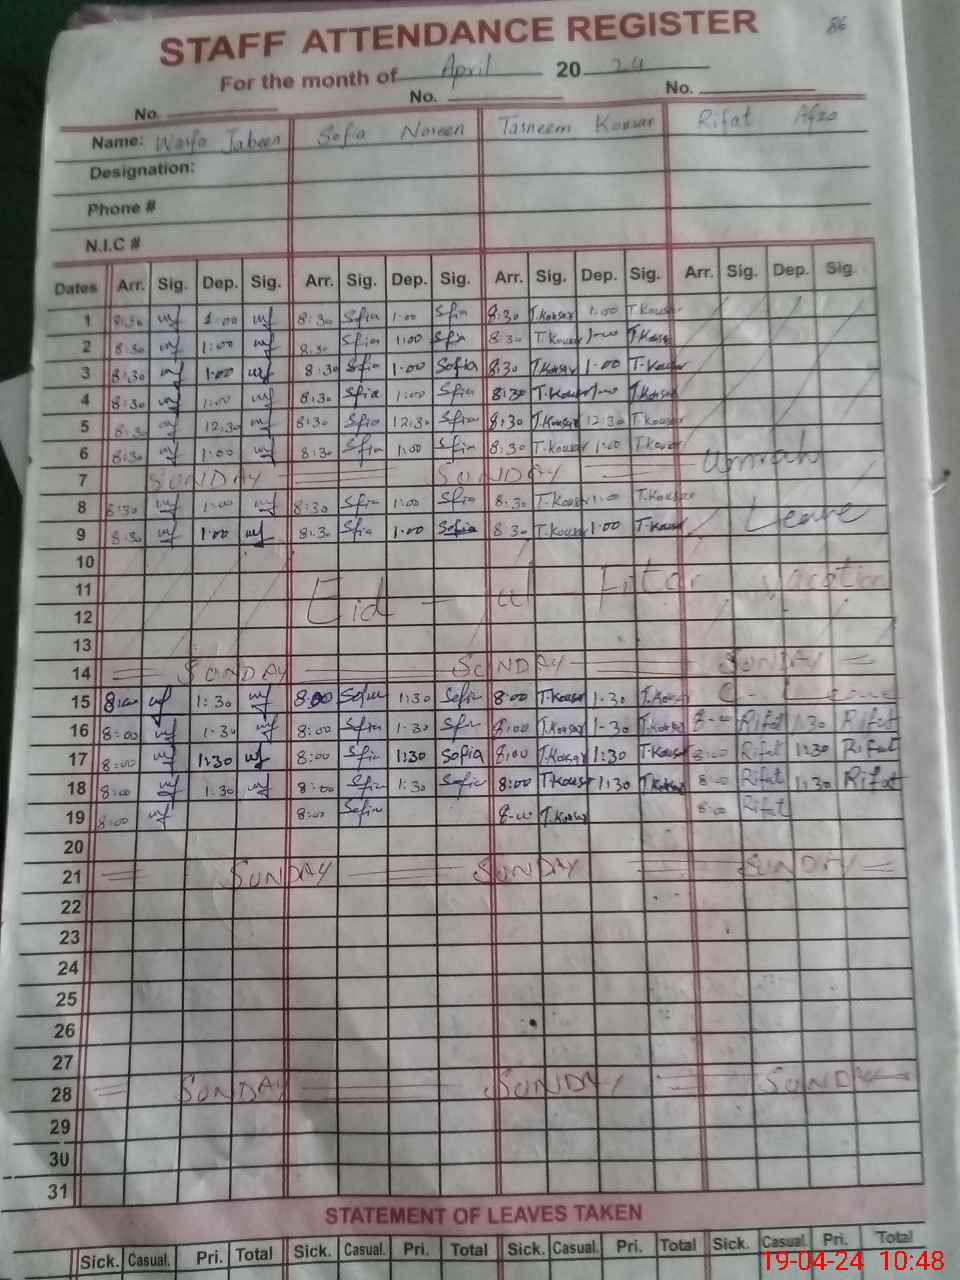 86
STAFF ATTENDANCE REGISTER
For the month of April 2024
No. No. No.
Name: Jabeen Sofia Noreen Tasneem Kousar Rifat Afza
Designation:
Phone #
N.I.C #
Dates Arr. Sig. Dep. Sig. Arr. Sig. Dep. Sig. Arr. Sig. Dep. Sig. Arr. Sig. Dep. Sig.
1 8:30 1:00 8:30 Sfia 1:00 Sfia 8:30 T.Kousar 1:00 T.Kousar
2 8:30 1:00 8:30 Sfia 1:00 Sfia 8:30 T.Kousar 1-00 T.Kousar
3 8:30 1:00 8:30 Sfia 1:00 Sofia 8:30 T.Kousar 1:00 T.Kousar
4 8:30 1:00 8:30 Sfia 1:00 Sfia 8:30 T.Kousar 1-00 T.Kousar
5 8:30 12:30 8:30 Sfia 12:30 Sfia 8:30 T.Kousar 12:30 T.Kousar
6 8:30 1:00 8:30 Sfia 1:00 Sfia 8:30 T.Kousar 1:00 T.Kousar Umrah
7 SUNDAY SUNDAY
8 8:30 1:00 8:30 Sfia 1:00 Sfia 8:30 T.Kousar 1:00 T.Kousar
9 8:30 1:00 8:30 Sfia 1:00 Sofia 8:30 T.Kousar 1:00 T.Kousar Leave
10
11 Eid - ul - Fitar vacation
12
13
14 SUNDAY SUNDAY SUNDAY
15 8:00 1:30 8:00 Sofia 1:30 Sofia 8:00 T.Kousar 1:30 T.Kousar C - Leave
16 8:00 1:30 8:00 Sfia 1:30 Sfia 8:00 T.Kousar 1-30 T.Kousar 8-00 Rifat 1:30 Rifat
17 8:00 1:30 8:00 Sfia 1:30 Sofia 8:00 T.Kousar 1:30 T.Kousar 8:00 Rifat 1:30 Rifat
18 8:00 1:30 8:00 Sfia 1:30 Sofia 8:00 T.Kousar 1:30 T.Kousar 8:00 Rifat 1:30 Rifat
19 8:00 8:00 Sofia 8-00 T.Kousar 8:00 Rifat
20
21 SUNDAY SUNDAY SUNDAY
22
23
24
25
26
27
28 SUNDAY SUNDAY SUNDAY
29
30
31
STATEMENT OF LEAVES TAKEN
Sick. Casual. Pri. Total Sick. Casual. Pri. Total Sick. Casual. Pri. Total Sick. Casual. Pri. Total
19-04-24 10:48